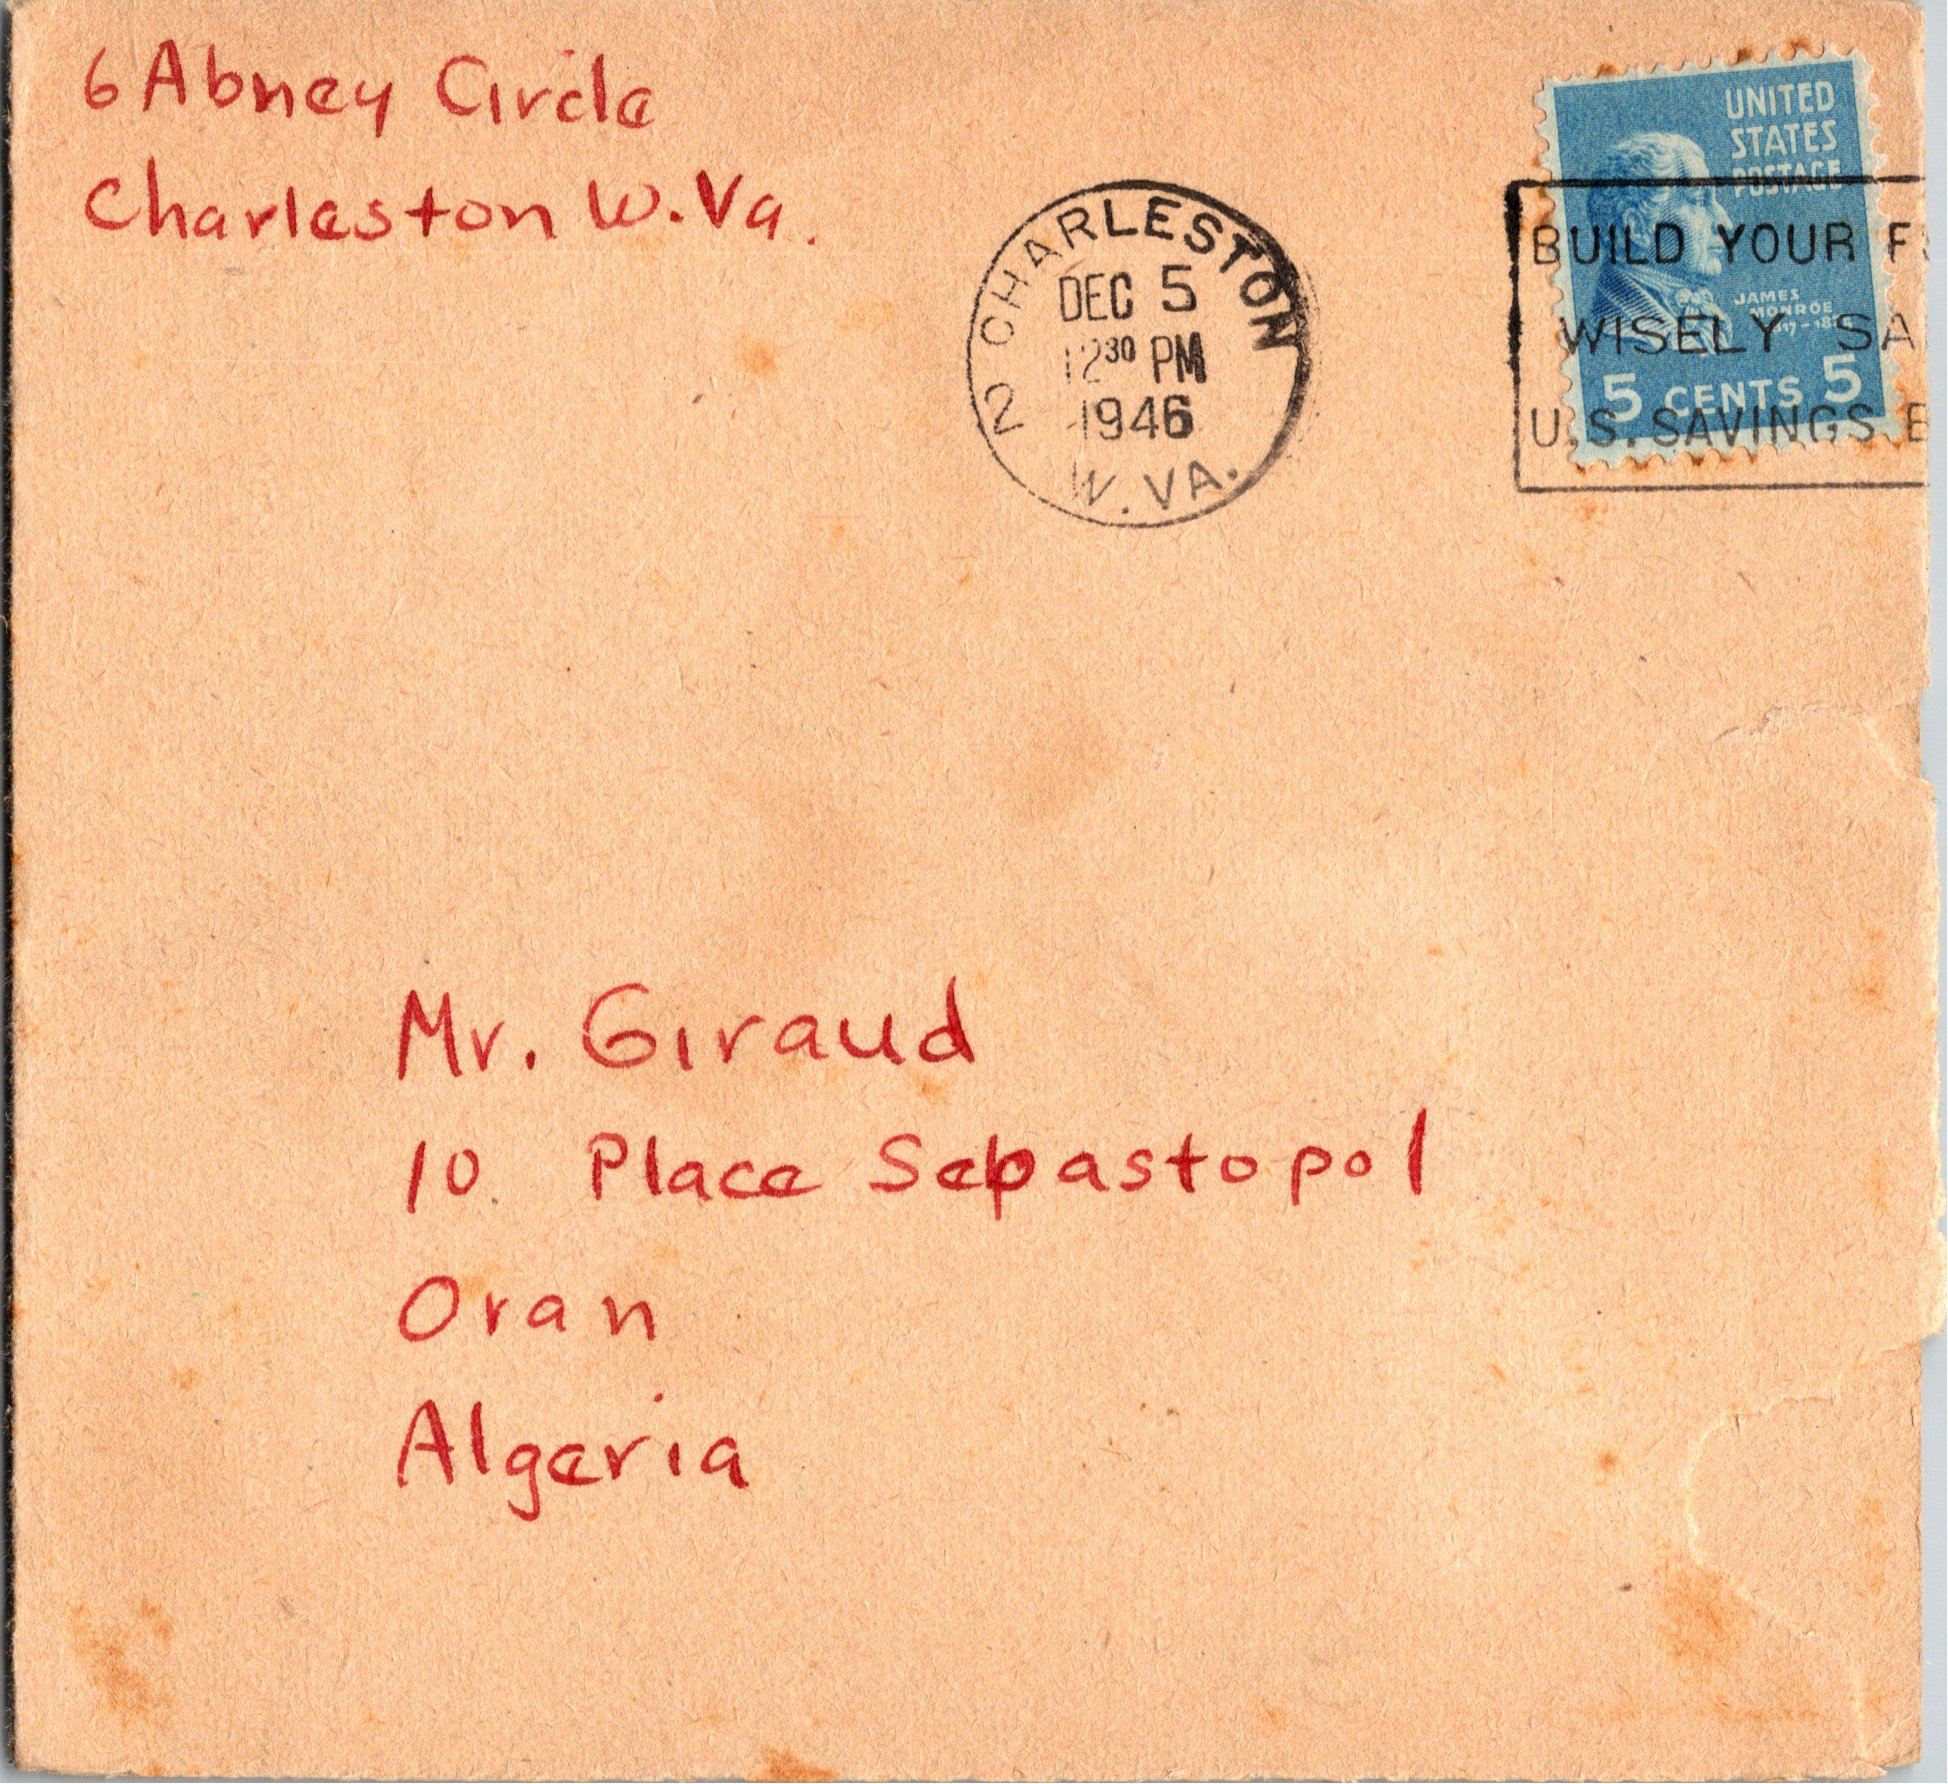 6 Abney Circle
Charleston W. Va.
2 CHARLESTON
DEC 5
12 30 PM
1946
W. VA.
UNITED
STATES
POSTAGE
JAMES
MONROE
5 CENTS 5
BUILD YOUR
WISELY
U.S. SAVINGS
Mr. Giraud
10 Place Sebastopol
Oran
Algeria